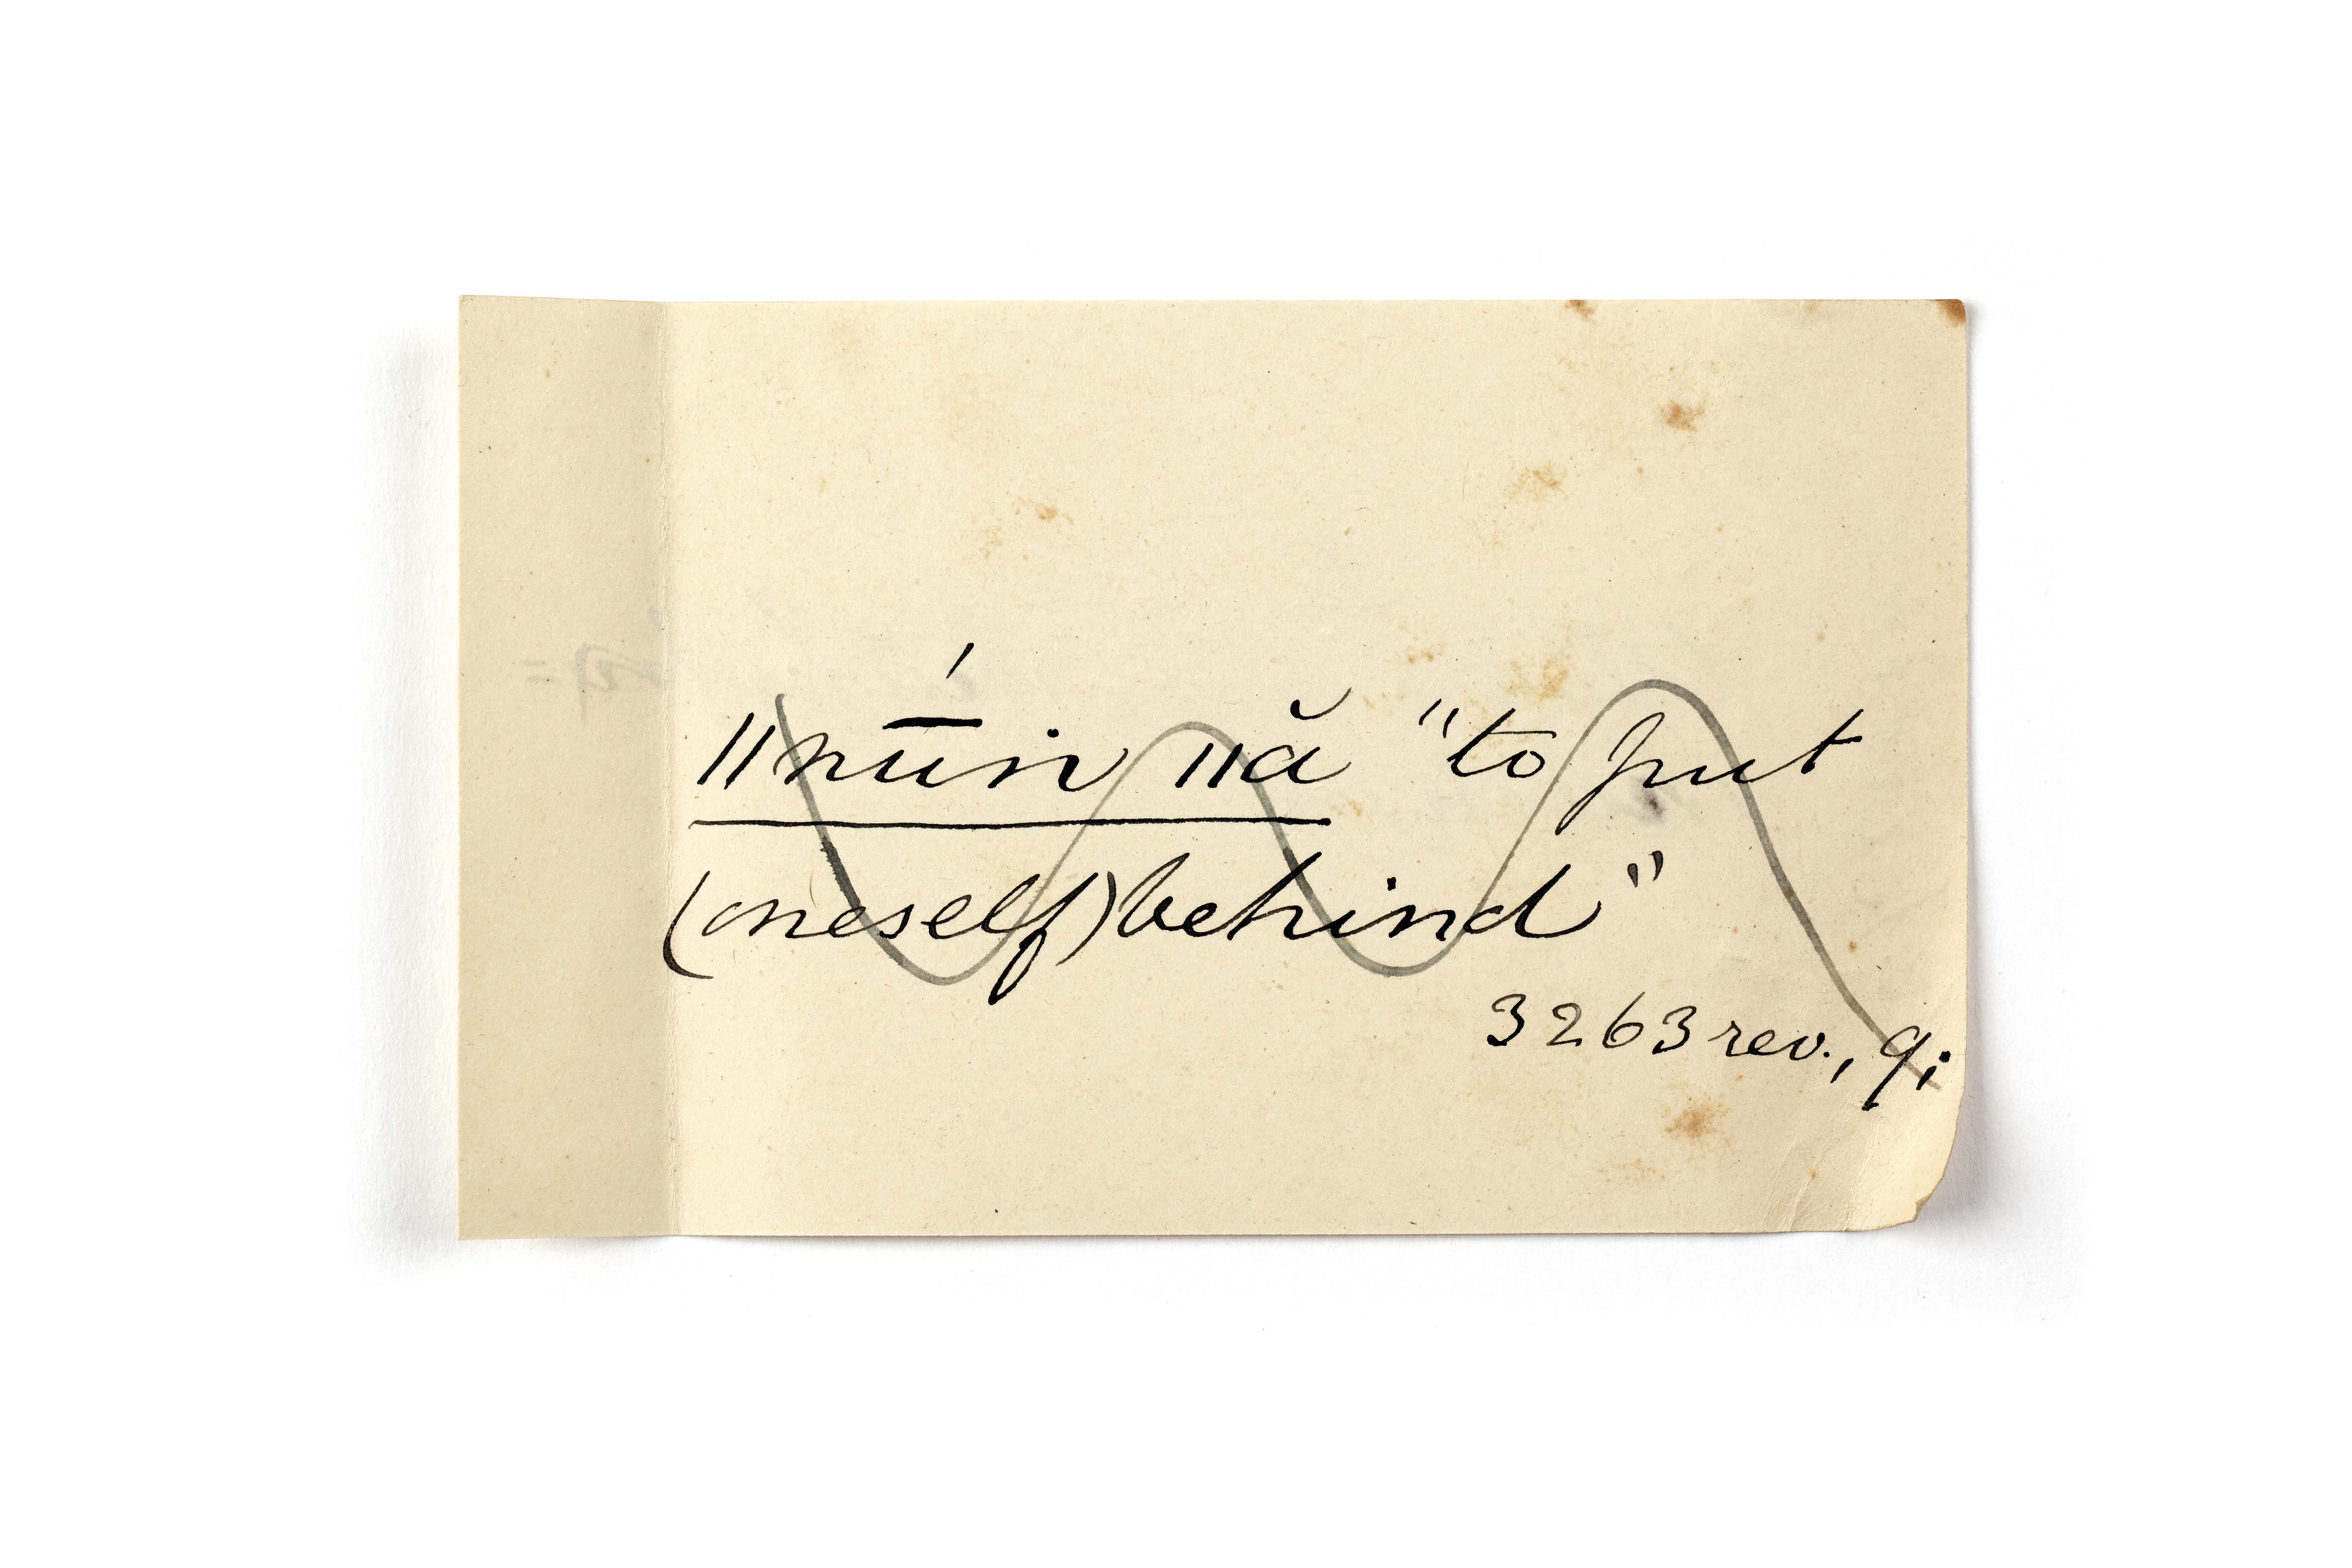 ǁnū́in ǁă "to put
(oneself) behind"
3263 rev., 9;